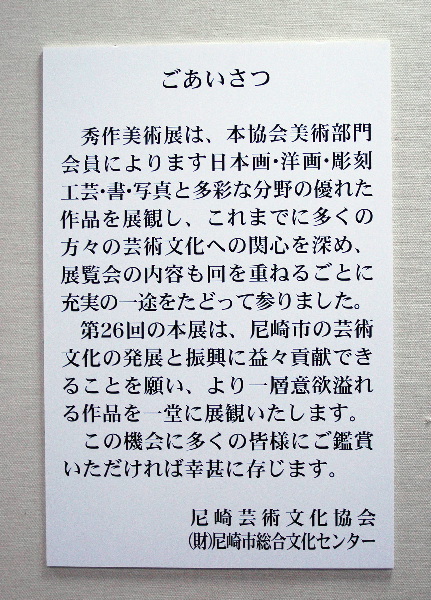 ごあいさつ
秀作美術展は、本協会美術部門
会員によります日本画・洋画・彫刻
工芸・書・写真と多彩な分野の優れた
作品を展観し、これまでに多くの
方々の芸術文化への関心を深め、
展覧会の内容も回を重ねるごとに
充実の一途をたどって参りました。
第26回の本展は、尼崎市の芸術
文化の発展と振興に益々貢献でき
ることを願い、より一層意欲溢れ
る作品を一堂に展観いたします。
この機会に多くの皆様にご鑑賞
いただければ幸甚に存じます。
尼崎芸術文化協会
(財)尼崎市総合文化センター